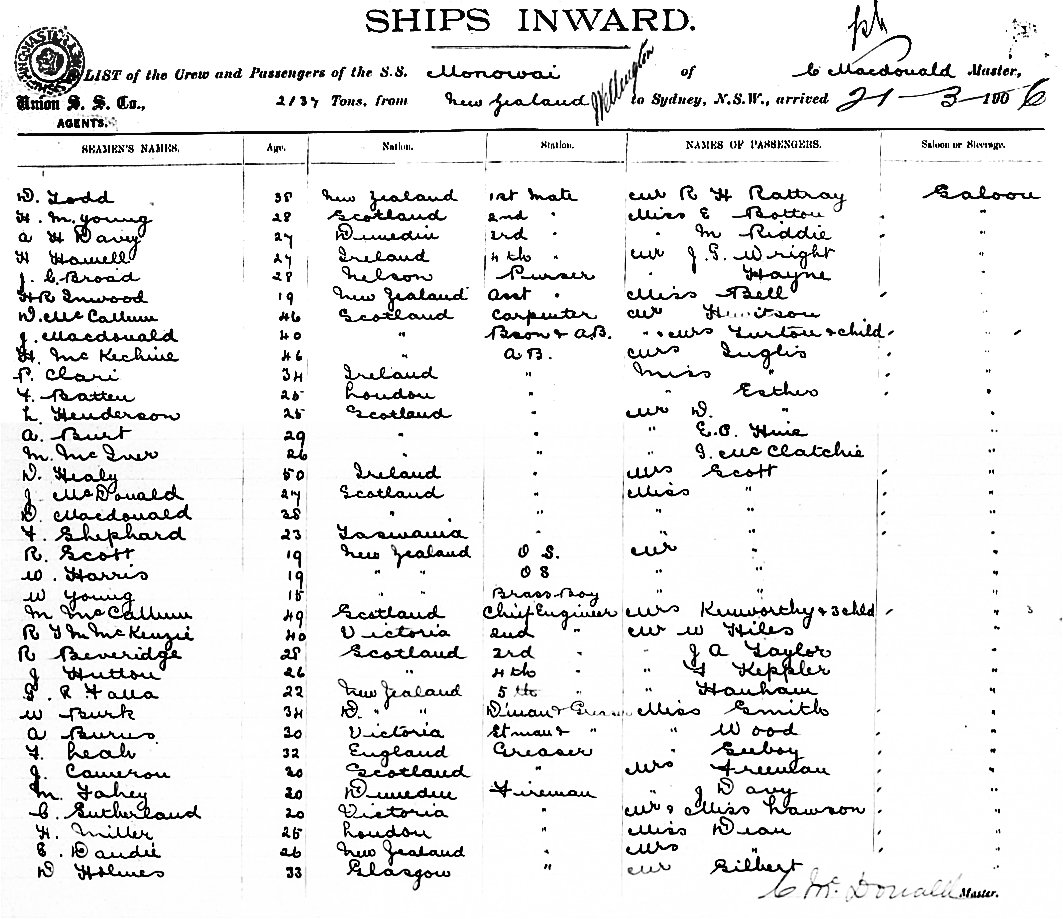 SHIPS INWARD.
LIST of the Crew and Passengers of the S.S. Monowai of C Macdonald Master,
Union S. S. Co., 2137 Tons, from New Zealand Wellington to Sydney, N.S.W., arrived 21-3-1906
AGENTS.
SEAMEN'S NAMES. Age. Nation. Station. NAMES OF PASSENGERS. Saloon or Steerage.
D. Todd 38 New Zealand 1st Mate Mr R H Rattray Saloon
H. M. Young 28 Scotland 2nd " Miss E Botton "
A H Davey 27 Dunedin 3rd " " M Riddie "
H Howell 27 Ireland 4th " Mr J. G. Wright "
J. C. Broad 28 Nelson Purser " Hayne "
H R Inwood 19 New Zealand Asst " Miss Bell "
D. McCallum 46 Scotland Carpenter Mr "
J. Macdonald 40 " Bson & A.B. " & Mrs Turton & child "
H. McKechnie 46 " A.B. Mrs Inglis "
P. Clari 34 Ireland " Miss " "
F. Batten 25 London " " Esther "
L. Henderson 25 Scotland " Mr D. " "
A. Burt 29 " " " E. C. Huie "
M. McIver 26 " " " J. McClatchie "
D. Healy 50 Ireland " Mrs Scott "
J. McDonald 27 Scotland " Miss " "
D. Macdonald 38 " " " " "
F. Shephard 23 Tasmania " " " "
R. Scott 19 New Zealand O S. Mr " "
W. Harris 19 " " O S " " "
W Young 18 " " Brass Boy " " "
M McCallum 49 Scotland Chief Engineer Mrs Kenworthy & 3 child "
R McKenzie 40 Victoria 2nd " Mr W Hiles "
R Beveridge 28 Scotland 3rd " " J A Taylor "
J Hutton 26 " 4th " " F Keppler "
R Falla 22 New Zealand 5th " " Hanham "
W Burk 34 D. " " Miss Smith "
A Burns 30 Victoria " " Wood "
F. Leah 32 England Greaser " "
J. Cameron 30 Scotland " Mrs Freeman "
M. Fahey 20 Dunedin Fireman " J Davy "
C. Sutherland 20 Victoria " Mr & Miss Lawson "
H. Miller 25 London " Miss Dean "
E. Daudie 26 New Zealand " Mrs " "
D Holmes 33 Glasgow " Mr Gilbert "
C McDonald Master.